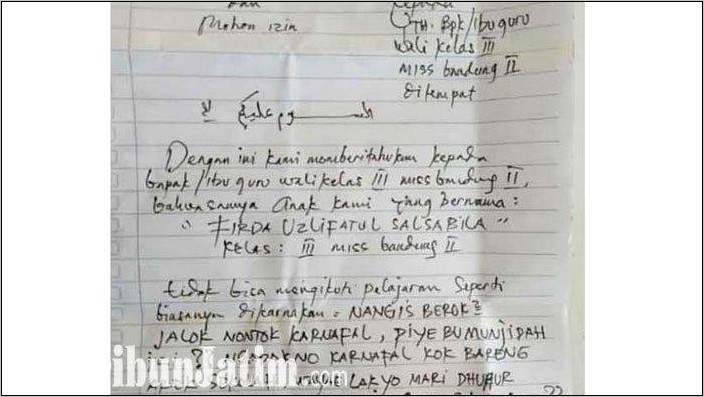 Mohon izin
Kepada
YTH. Bpk/ibu guru
wali kelas III
MISS bandung II
ditempat
السلام عليكم
Dengan ini kami memberitahukan kepada
bapak/ibu guru wali kelas III miss bandung II,
bahwasannya anak kami yang bernama :
" FIRDA UZLIFATUL SALSABILA "
KELAS : III miss bandung II
tidak bisa mengikuti pelajaran seperti
biasanya dikarnakan = NANGIS BEROK²
JALOK NONTOK KARNAFAL, PIYE BU MUNJIDAH
iki ? KARNAFAL KOK BARENG
LAK YO MARI DHUHUR
TribunJatim.com